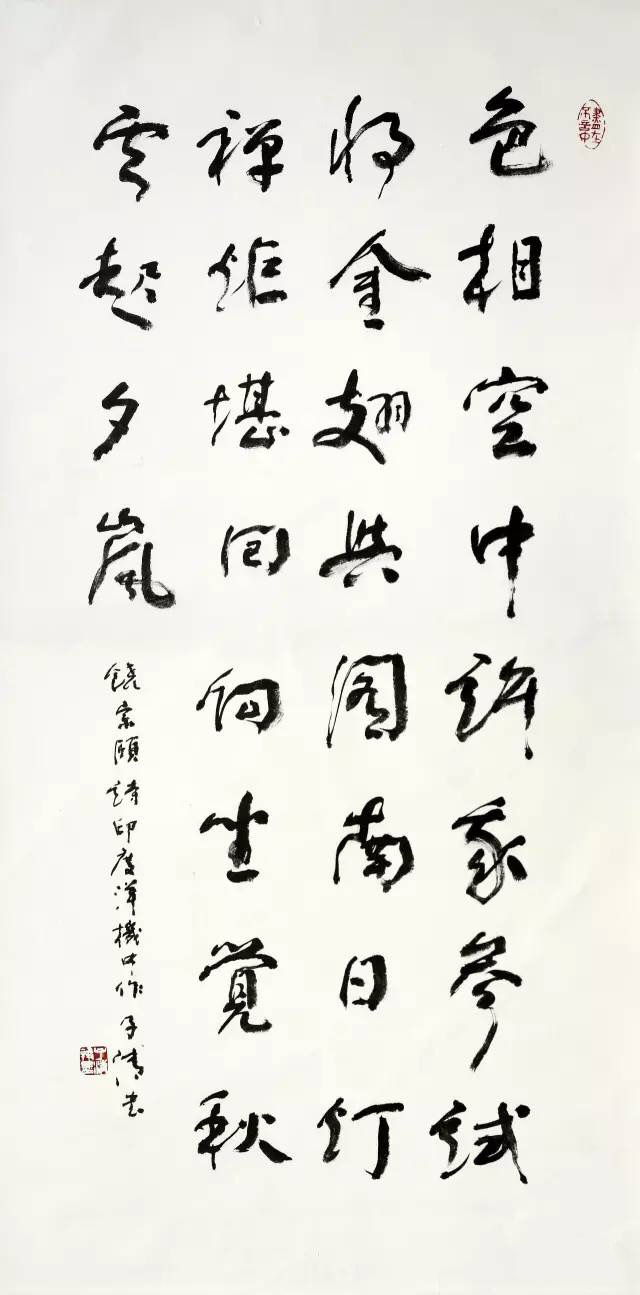 色相空中許我參試
將金翅與圖南日灯
禪炬堪回向坐覺秋
雲起夕嵐
饒宗頤詩印度洋機中作子 書